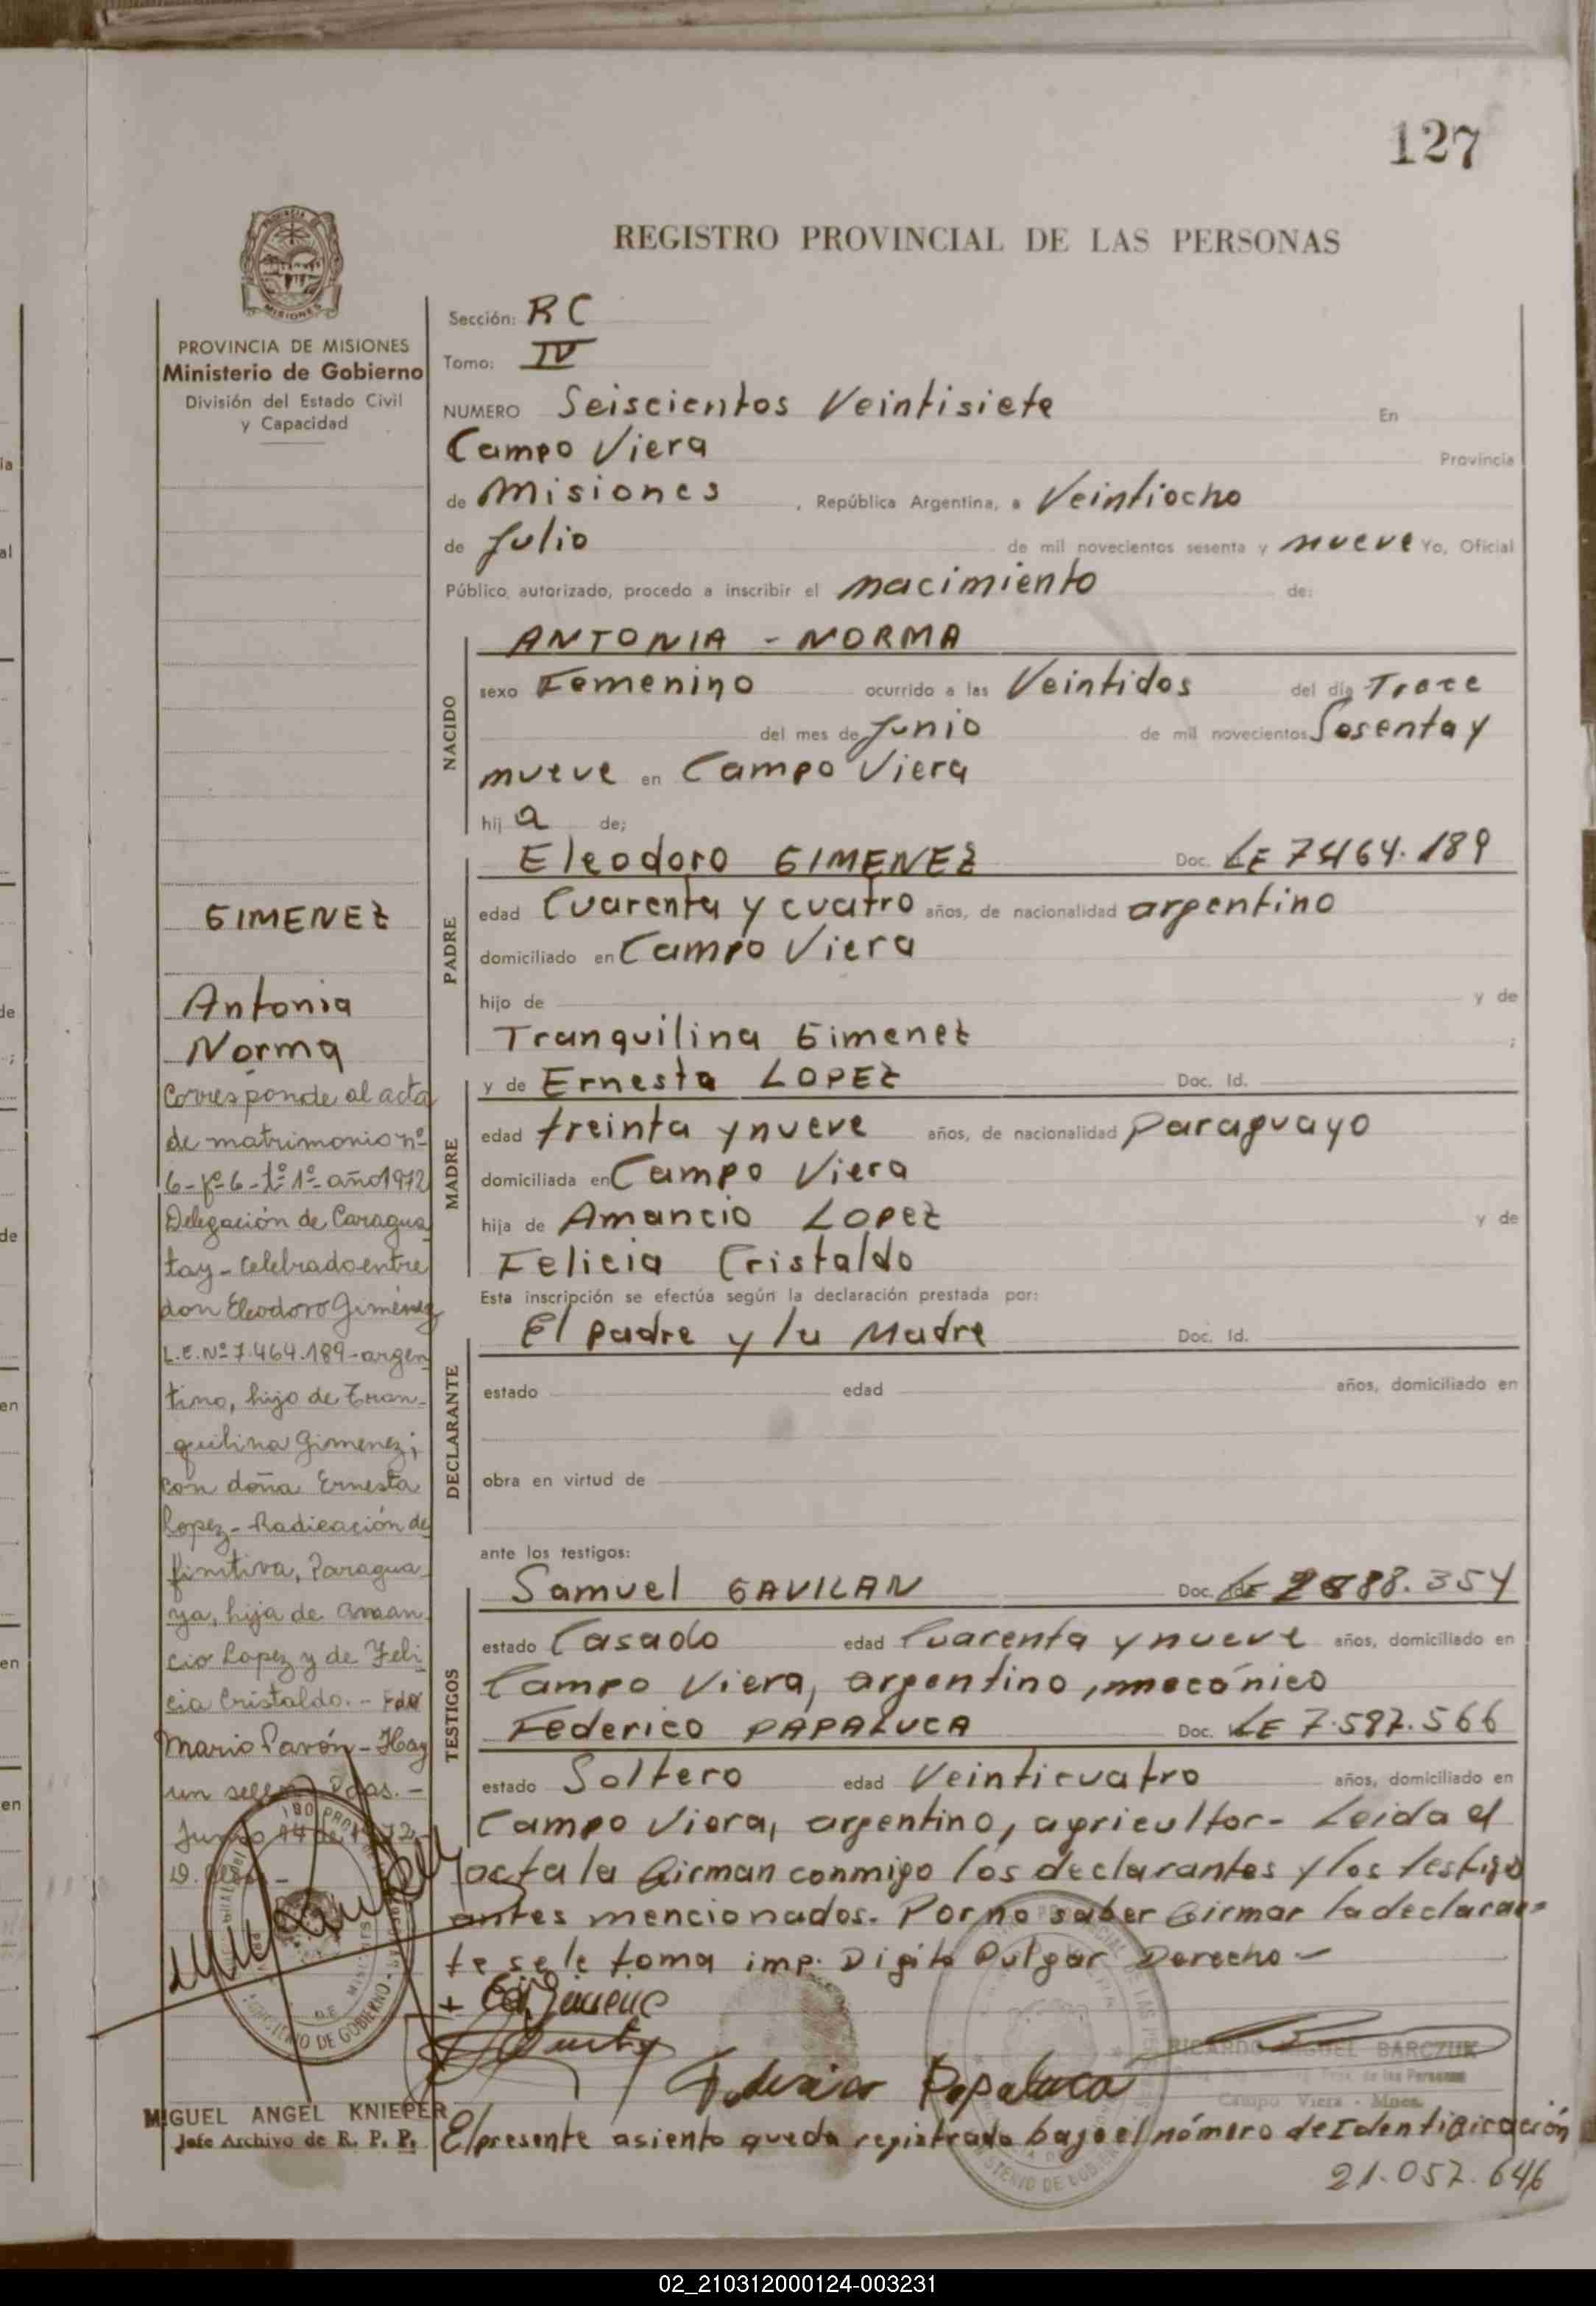 127
REGISTRO PROVINCIAL DE LAS PERSONAS
MISIONES
PROVINCIA DE MISIONES
Ministerio de Gobierno
División del Estado Civil
y Capacidad
GIMENEZ
Antonia
Norma
Corresponde al acta
de matrimonio nº
6-fº6-tº1º-año1972
Delegación de Caragua
tay-celebrado entre
don Eleodoro Giménez
L.E.Nº7.464.189-argen
tino, hijo de Tran-
quilina Gimenez;
con doña Ernesta
Lopez-Radicación de
finitiva, Paragua
ya, hija de Aman
cio Lopez y de Feli
cia Cristaldo.-Fdo
Mario Pavón-Hay
un sello. Pdas.-
Junio 14 de 1972
MINISTERIO DE GOBIERNO
MIGUEL ANGEL KNIEPER
Jefe Archivo de R. P. P.
Sección: RC
Tomo: IV
NUMERO Seiscientos Veintisiete En
Campo Viera Provincia
de Misiones, República Argentina, a Veintiocho
de Julio de mil novecientos sesenta y nueve Yo, Oficial
Público autorizado, procedo a inscribir el nacimiento de:
NACIDO
ANTONIA - NORMA
sexo Femenino ocurrido a las Veintidos del día Trece
del mes de Junio de mil novecientos Sesenta y
nueve en Campo Viera
hij a de;
PADRE
Eleodoro GIMENEZ Doc. LE 7464.189
edad Cuarenta y cuatro años, de nacionalidad argentino
domiciliado en Campo Viera
hijo de y de
Tranquilina Gimenez ;
MADRE
y de Ernesta LOPEZ Doc. Id.
edad treinta y nueve años, de nacionalidad paraguayo
domiciliada en Campo Viera
hija de Amancio Lopez y de
Felicia Cristaldo
Esta inscripción se efectúa según la declaración prestada por:
DECLARANTE
El padre y la Madre Doc. Id.
estado edad años, domiciliado en
obra en virtud de
ante los testigos:
TESTIGOS
Samuel GAVILAN Doc. LE 88.354
estado Casado edad Cuarenta y nueve años, domiciliado en
Campo Viera, argentino, mecánico
Federico PAPALUCA Doc. LE 7.597.566
estado Soltero edad Veinticuatro años, domiciliado en
Campo Viera, argentino, agricultor- Leida el
acta la firman conmigo los declarantes y los testigo
antes mencionados. Por no saber firmar la declaran-
te se le toma imp. Digito Pulgar Derecho-
Federico Papaluca
RICARDO MIGUEL BARCZUK
Campo Viera - Mnes.
El presente asiento queda registrado bajo el número de Identificación
21.057.646
02_210312000124-003231